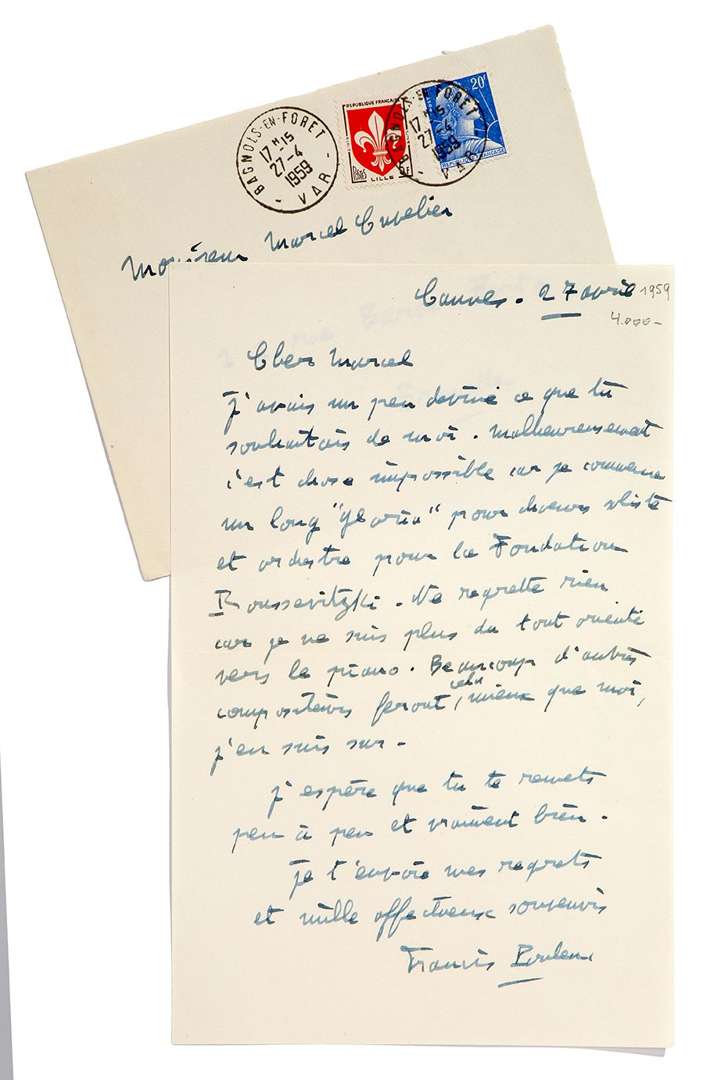 BAGNOLS-EN-FORET
17 H 15
27-4
1959
- VAR -
REPUBLIQUE FRANÇAISE
LILLE
5F
20F
BAGNOLS-EN-FORET
17 H 15
27-4
1959
- VAR -
Monsieur Marcel Cuvelier
Cannes. 27 avril 1959
4.000-
Cher Marcel
J'avais un peu deviné ce que tu
souhaitais de moi. Malheureusement
c'est chose impossible car je commence
un long "Gloria" pour chœurs soliste
et orchestre pour la Fondation
Koussevitzki. Ne regrette rien
car je ne suis plus du tout orienté
vers le piano. Beaucoup d'autres
compositeurs feront cela, mieux que moi,
j'en suis sur.
J'espère que tu te remets
peu à peu et vraiment bien.
Je t'envoie mes regrets
et mille affectueux souvenirs
Francis Poulenc